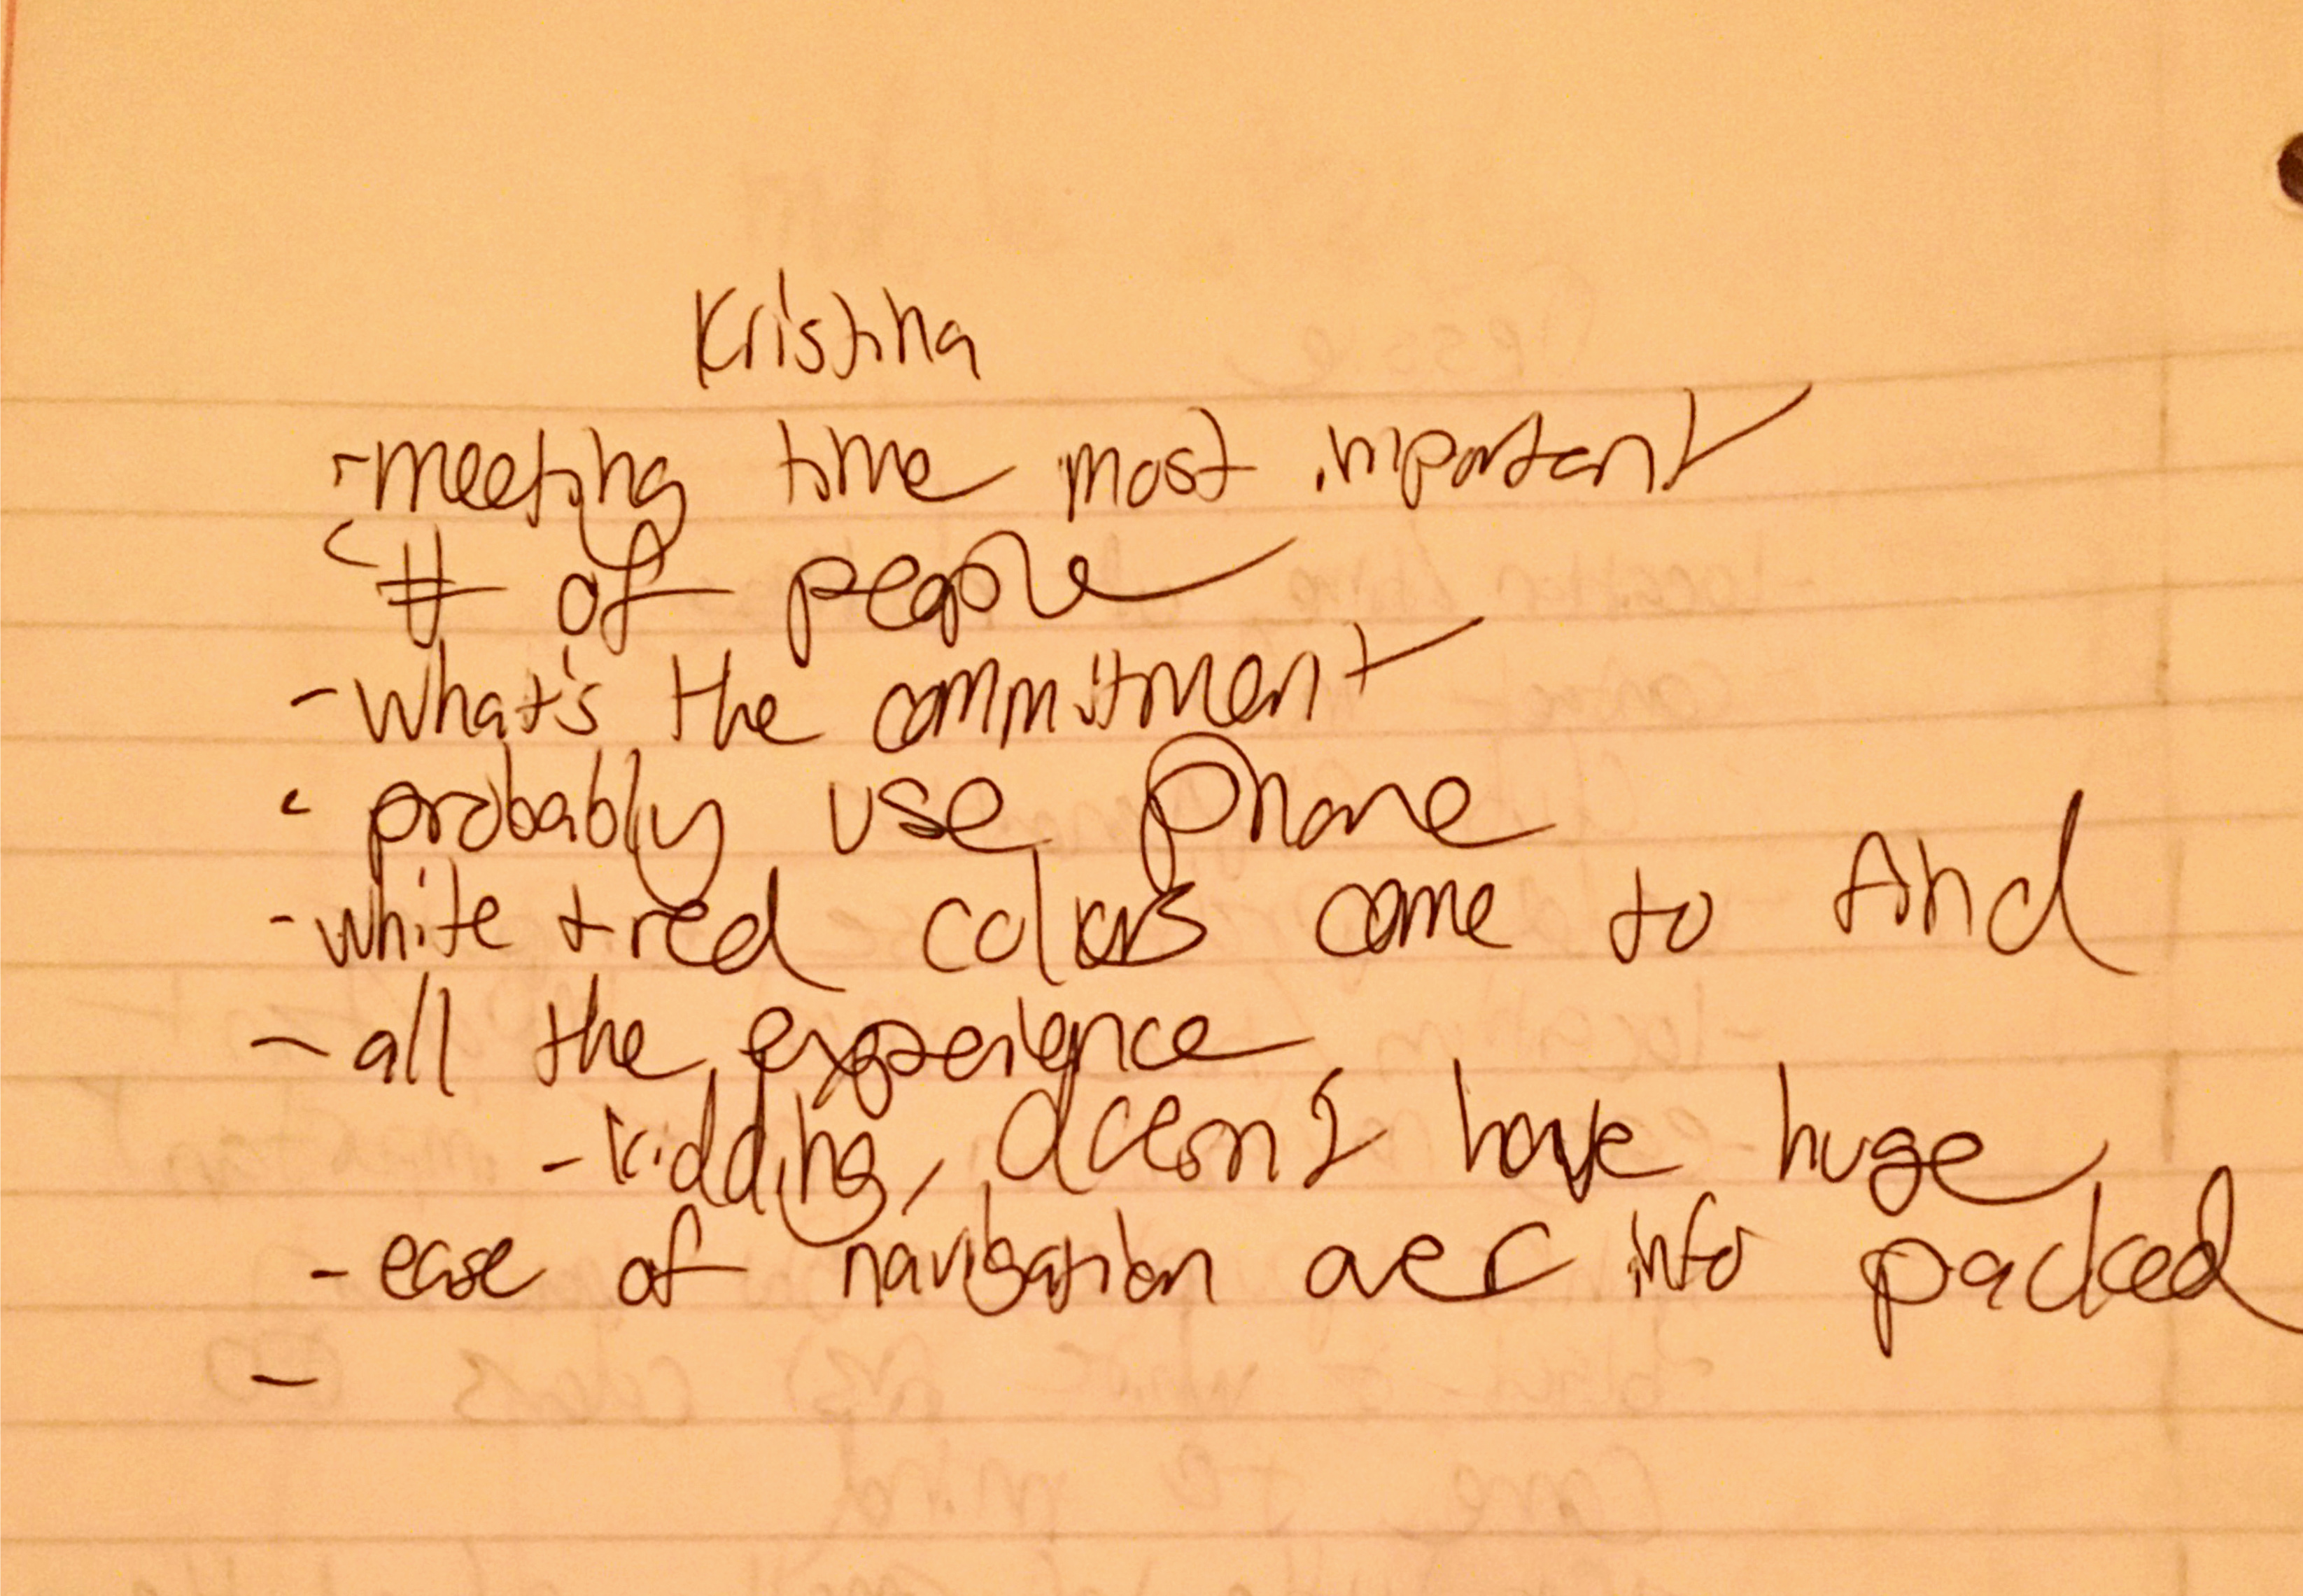 Kristina
-meeting time most important
- # of people
- what's the commitment
- probably use phone
- white + red colors come to find
- all the experience
- kidding, doesn't have huge
- ease of navigation over info packed
-